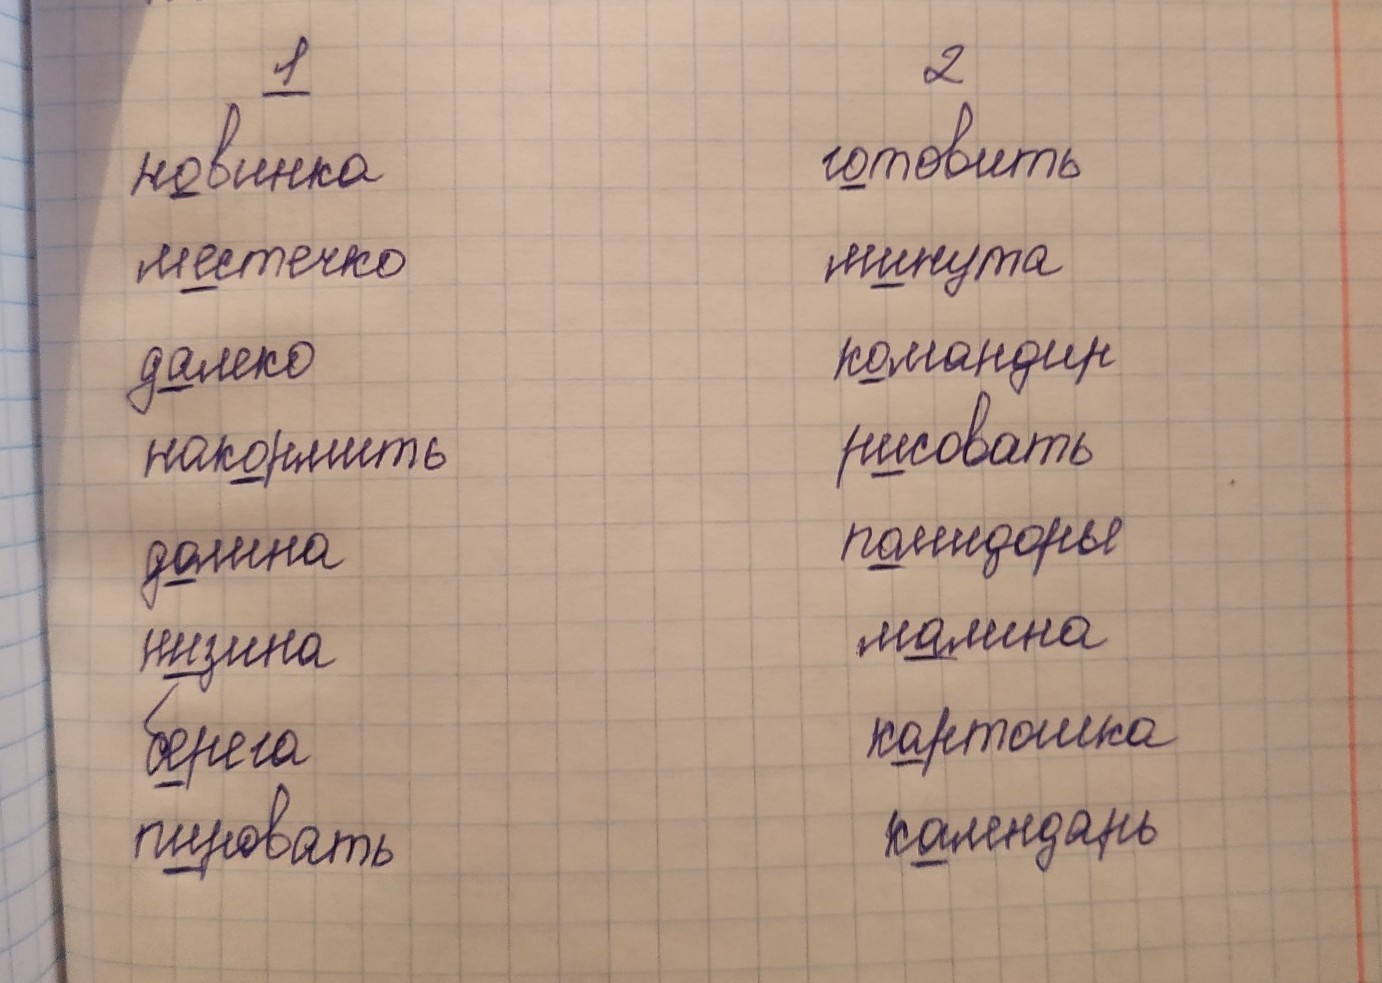 1
новинка
местечко
далеко
накормить
долина
низина
берега
пировать
2
готовить
минута
командир
рисовать
помидоры
малина
картошка
календарь